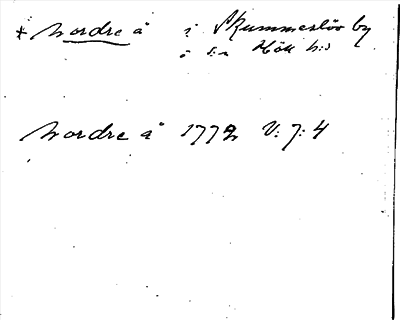 * Nordre å i Skummeslöv by
i s:n Hök h:d
Nordre å 1772 V: 7: 4